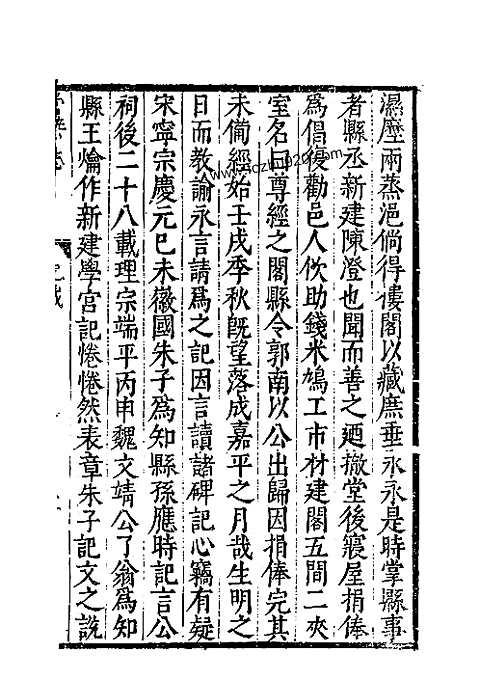 濕塵兩蒸浥倘得僂閣以藏庶垂永永是時掌縣事
者縣丞新建陳澄也聞而善之廼撤堂後寢屋捐俸
為倡復勸邑人佽助錢米鳩工市材建閣五間二夾
室名曰尊經之閣縣令郭南以公出歸因捐俸完其
未備經始壬戌季秋旣望落成嘉平之月哉生明之
日而教諭永言請為之記因言讀諸碑記心竊有疑
宋寧宗慶元己未徽國朱子為知縣孫應時記言公
祠後二十八載理宗端平丙申魏文靖公了翁為知
縣王爚作新建學宮記惓惓然表章朱子記文之說